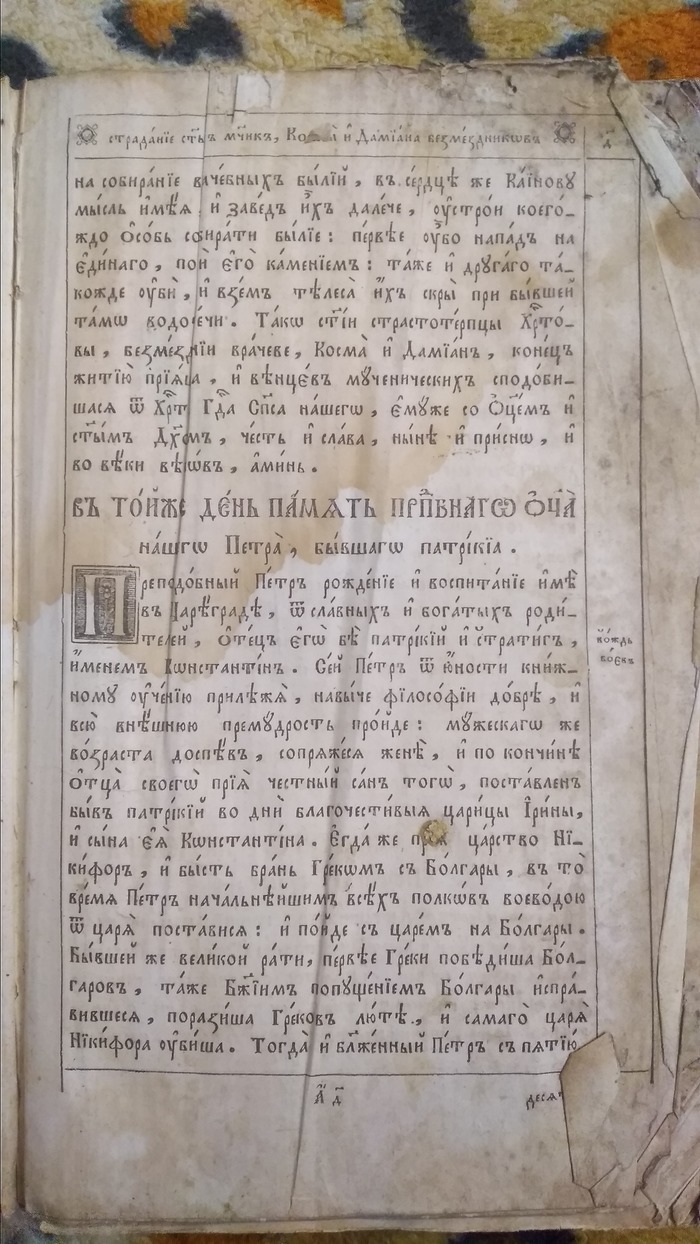 страда́нїе ст҃ы́хъ мч҃никъ, Космы̀ и҆ Дамїа́на безме́здникѡвъ
д҃
на собира́нїе враче́бныхъ бы́лїй, въ се́рдцѣ же Ка́їнову
мы́сль и҆мѣ́ѧ, и҆ заве́дъ и҆̀хъ дале́че, ᲂу҆стро́и коего́_
ждо ѻ҆со́бь собира́ти бы́лїе: пе́рвѣе ᲂу҆́бо напа́дъ на
є҆ди́наго, поби̂ є҆го̀ ка́менїемъ: та́же и҆ дрꙋга́го та_
ко́жде ᲂу҆би̂, и҆ взе́мъ тѣлеса̀ и҆́хъ скры̀ при бы́вшей
та́мѡ водоте́чи. Та́кѡ ст҃і́и страстоте́рпцы Хрⷭ҇то́_
вы, безме́знїи вра́чеве, Косма̀ и҆ Дамїа́нъ, коне́цъ
житїю̀ прїѧ́ша, и҆ вѣнцє́въ мꙋ́ченическихъ сподо́би_
шасѧ ѿ Хрⷭ҇та̀ Гдⷭ҇а Сп҃са на́шегѡ, є҆мꙋ́же со Ѻ҆ц҃е́мъ и҆
ст҃ы́мъ Дх҃омъ, че́сть и҆ сла́ва, ны́нѣ и҆ при́снѡ, и҆
во вѣ́ки вѣкѡ́въ, а҆ми́нь.
въ то́йже де́нь па́мѧть прпⷣбнагѡ ѻ҆ц҃а̀
на́шгѡ Петра̀, бы́вшагѡ патрі́кїа.
Преподо́бный Пе́тръ рожде́нїе и҆ воспита́нїе и҆мѣ̀
въ Царѣ́градѣ, ѿ сла́вныхъ и҆ бога́тыхъ роди́_
телей, ѻ҆те́цъ є҆гѡ̀ бѣ̀ патрі́кїй и҆ страти́гъ,
вождь
вое́въ
и҆́менемъ Кѡнстанті́нъ. Се́й Пе́тръ ѿ ю҆́ности кни́ж_
номꙋ ᲂу҆че́нїю прилѣжа̀, навы́че філосо́фїи до́брѣ, и҆
всю̀ внѣ́шнюю премꙋ́дрость про́йде: мꙋ́жескагѡ же
во́зраста доспѣ́въ, сопрѧже́сѧ женѣ̀, и҆ по кончи́нѣ
ѻ҆тца̀ своегѡ̀ прїѧ̀ честны́й са́нъ тогѡ̀, поста́вленъ
бы́въ патрі́кїй во дни̂ благочести́выѧ цари́цы І҆ри́ны,
и҆ сы́на є҆ѧ̀ Кѡнстанті́на. Є҆гда́ же прїѧ̀ ца́рство Ні_
ки́форъ, и҆ бы́сть бра́нь Гре́кѡмъ съ Бо́лгары, въ то̀
вре́мѧ Пе́тръ нача́льнѣйшимъ всѣ́хъ полкѡ́въ воево́дою
ѿ царѧ̀ поста́висѧ: и҆ по́йде съ царе́мъ на Бо́лгары.
Бы́вшей же вели́кой ра́ти, пе́рвѣе Гре́ки побѣди́ша Бол_
гаровъ, та́же Бж҃їимъ попꙋще́нїемъ Бо́лгары и҆спра́_
вившесѧ, порази́ша Гре́ковъ лю́тѣ, и҆ самаго̀ царѧ̀
Ніки́фора ᲂу҆би́ша. Тогда̀ и҆ бл҃же́нный Пе́тръ съ пѧтїю́
А҆ д҃
десѧ